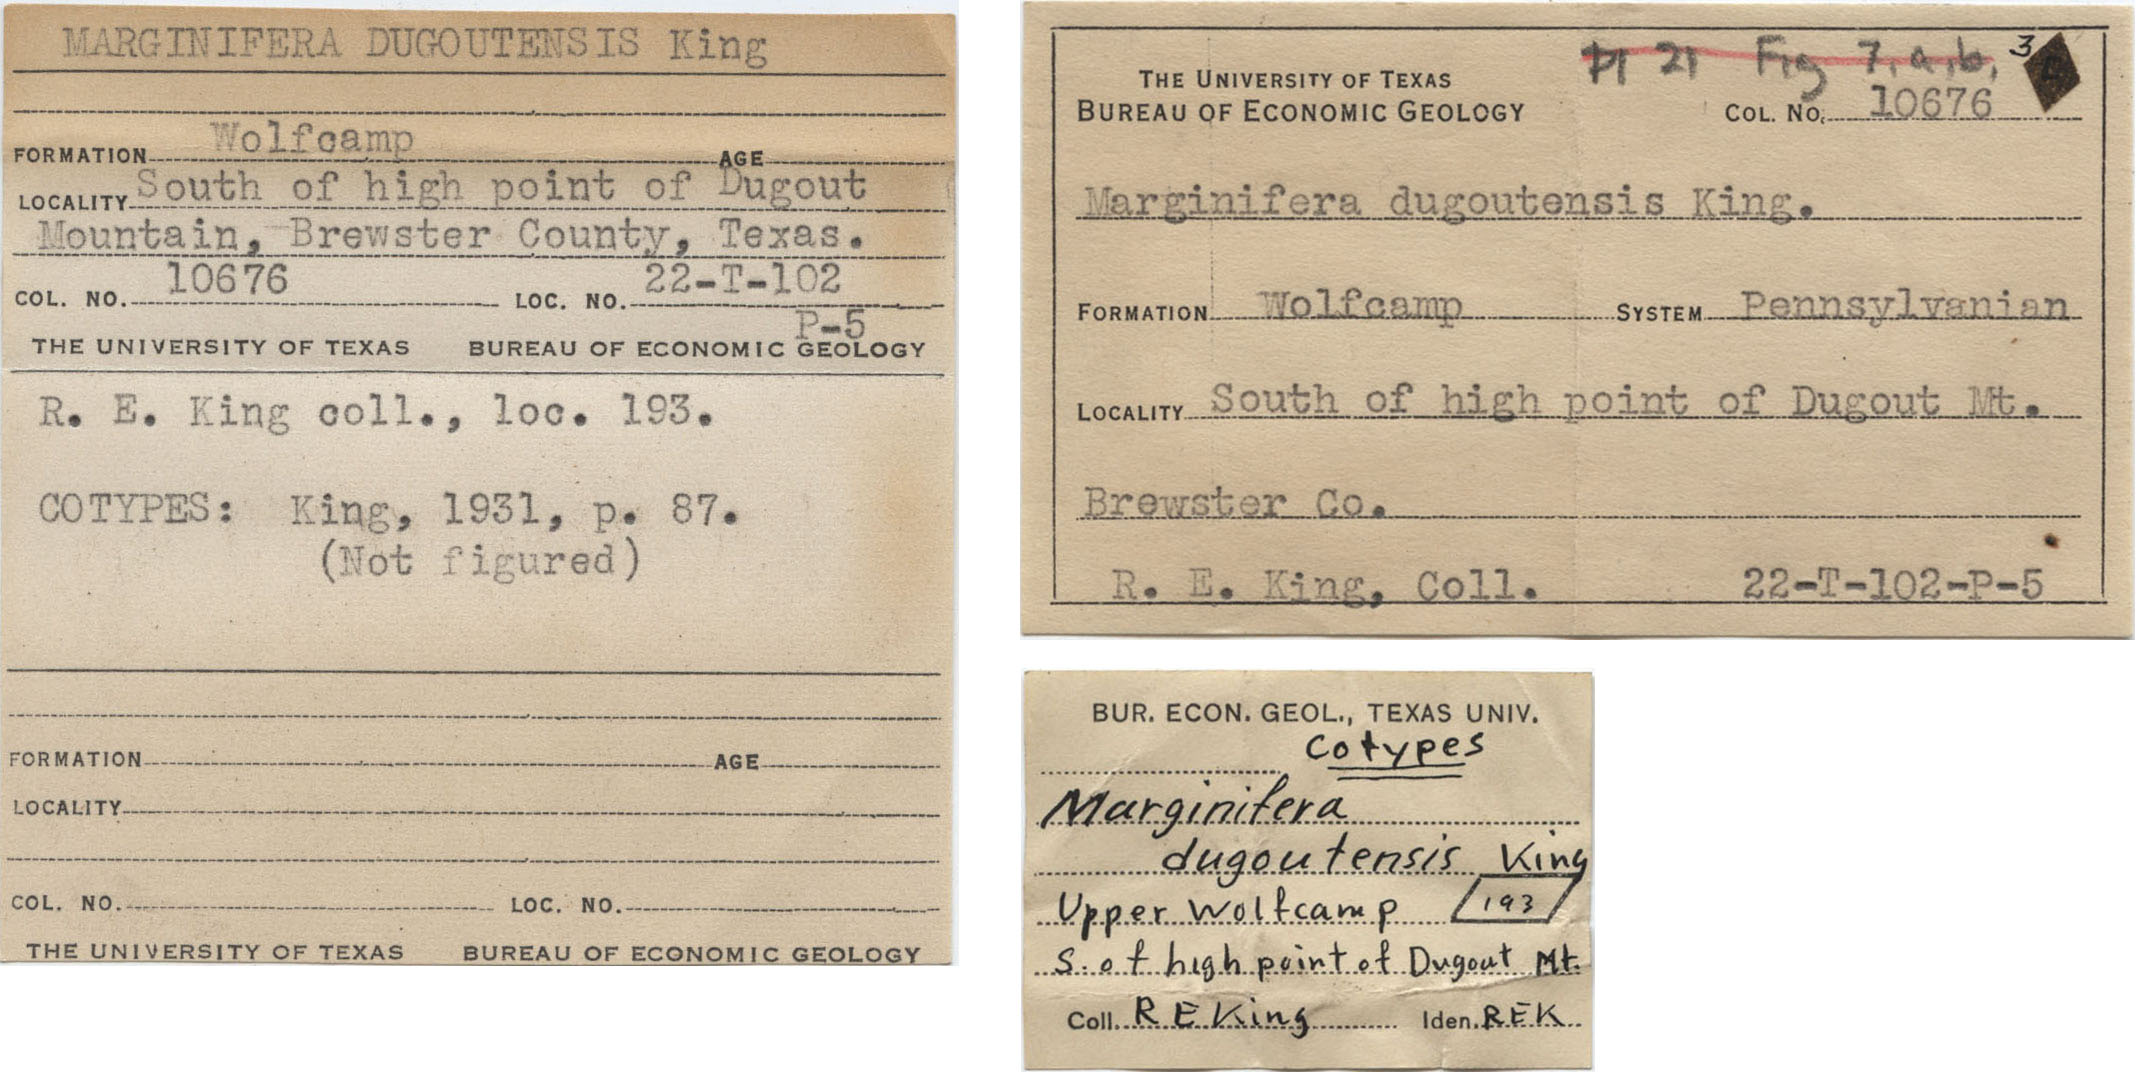 MARGINIFERA DUGOUTENSIS King
FORMATION Wolfcamp AGE
LOCALITY South of high point of Dugout
Mountain, Brewster County, Texas.
COL. NO. 10676 LOC. NO. 22-T-102
P-5
THE UNIVERSITY OF TEXAS BUREAU OF ECONOMIC GEOLOGY
R. E. King coll., loc. 193.
COTYPES: King, 1931, p. 87.
(Not figured)
FORMATION AGE
LOCALITY
COL. NO. LOC. NO.
THE UNIVERSITY OF TEXAS BUREAU OF ECONOMIC GEOLOGY
Pl 21 Fig 7, a, b, 3
THE UNIVERSITY OF TEXAS
BUREAU OF ECONOMIC GEOLOGY COL. NO. 10676
Marginifera dugoutensis King.
FORMATION Wolfcamp SYSTEM Pennsylvanian
LOCALITY South of high point of Dugout Mt.
Brewster Co.
R. E. King, Coll. 22-T-102-P-5
BUR. ECON. GEOL., TEXAS UNIV.
Cotypes
Marginifera
dugoutensis King
Upper Wolfcamp 193
S. of high point of Dugout Mt.
Coll. R E King Iden. REK